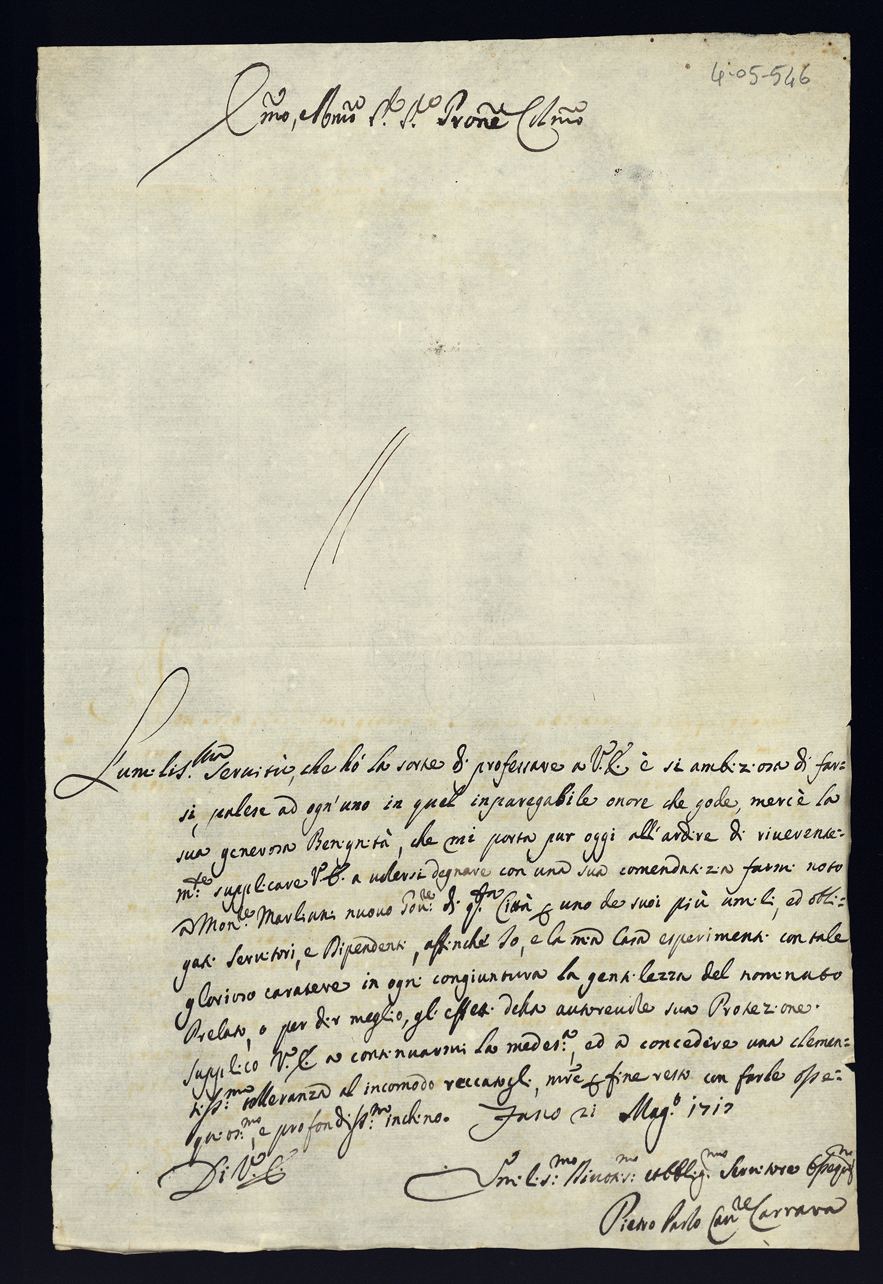 4-05-546
Em̃o, e Rm̃o S.r S.r Prõne Colm̃o
L'umilis.ma Servitù, che hò la sorte di professare a V.E. è si ambiziosa di far=
si, palese ad ogn'uno in quell'impregabile onore che gode, mercè la
sua generosa Benignità, che mi porta pur oggi all'ardire di riverente=
m.te supplicare V.E. a volersi degnare con una sua comendatizia farmi noto
a Mon.re Marliani nuovo Gov.re di q.sta Città uno de suoi più umili, ed obli=
gati Servitori, e Dipendenti, affinché Io, e la mia Casa esperimenti con tale
glorioso carattere in ogni congiuntura la gentilezza del nominato
Prelato, o per dir meglio, gl'effetti della autorevole sua Protezione.
Supplico V.E. a continuarmi la medes.a, ed a concedere una clemen=
tiss.ma tolleranza al incomodo reccatogli, fine resto con farle osse=
quios.mo, e profondiss.mo inchino. 21 Mag.o 1717
Di V.E.
Umilis.mo Divotis.mo et Obblig.mo Servitore
Pietro Paolo Carrara